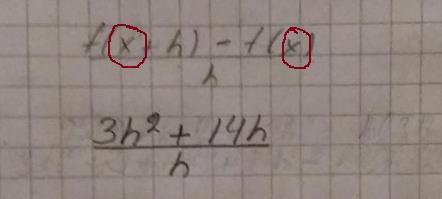 f(x + h) - f(x)
h
3h² + 14h
h